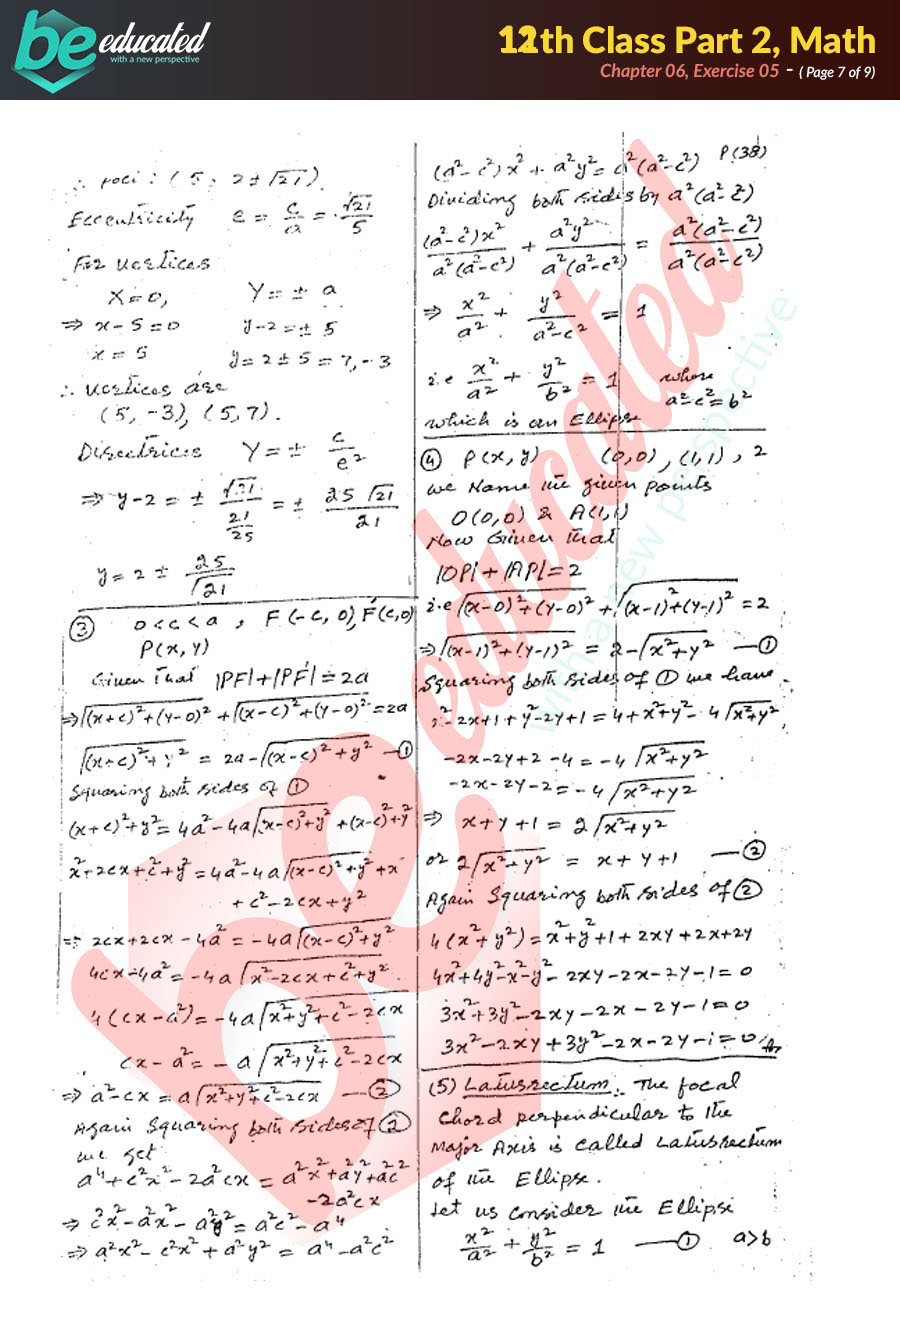 be educated
with a new perspective
12th Class Part 2, Math
Chapter 06, Exercise 05 - ( Page 7 of 9)
∴ foci : (5, 2 ± √21).
Eccentricity e = c/a = √21/5
For vertices
X = 0, Y = ± a
⇒ x - 5 = 0 y - 2 = ± 5
x = 5 y = 2 ± 5 = 7, -3
∴ vertices are
(5, -3), (5, 7).
Directrices Y = ± c/e²
⇒ y - 2 = ± √21/(21/25) = ± 25√21/21
y = 2 ± 25/√21
③ 0 < c < a , F(-c, 0), F′(c, 0)
P(x, y)
Given that |PF| + |PF′| = 2a
⇒ √((x+c)² + (y-0)²) + √((x-c)² + (y-0)²) = 2a
√((x+c)² + y²) = 2a - √((x-c)² + y²) —①
Squaring both sides of ①
(x+c)² + y² = 4a² - 4a√((x-c)² + y²) + (x-c)² + y²
x² + 2cx + c² + y² = 4a² - 4a√((x-c)² + y²) + x²
+ c² - 2cx + y²
⇒ 2cx + 2cx - 4a² = -4a√((x-c)² + y²)
4cx - 4a² = -4a√(x² - 2cx + c² + y²)
4(cx - a²) = -4a√(x² + y² + c² - 2cx)
cx - a² = -a√(x² + y² + c² - 2cx)
⇒ a² - cx = a√(x² + y² + c² - 2cx) —②
Again Squaring both sides of ②
we get
a⁴ + c²x² - 2a²cx = a²x² + a²y² + a²c²
-2a²cx
⇒ c²x² - a²x² - a²y² = a²c² - a⁴
⇒ a²x² - c²x² + a²y² = a⁴ - a²c²
P(38)
(a² - c²)x² + a²y² = a²(a² - c²)
Dividing both sides by a²(a² - c²)
(a² - c²)x²/a²(a² - c²) + a²y²/a²(a² - c²) = a²(a² - c²)/a²(a² - c²)
⇒ x²/a² + y²/a² - c² = 1
i.e x²/a² + y²/b² = 1 where
a² - c² = b²
which is an Ellipse
④ P(x, y) (0,0), (1,1), 2
We Name the given points
O(0,0) & A(1,1)
Now Given that
|OP| + |AP| = 2
i.e √((x-0)² + (y-0)²) + √((x-1)² + (y-1)²) = 2
⇒ √((x-1)² + (y-1)²) = 2 - √(x² + y²) —①
Squaring both sides of ① we have
x² - 2x + 1 + y² - 2y + 1 = 4 + x² + y² - 4√(x² + y²)
-2x - 2y + 2 - 4 = -4√(x² + y²)
-2x - 2y - 2 = -4√(x² + y²)
⇒ x + y + 1 = 2√(x² + y²)
or 2√(x² + y²) = x + y + 1 —②
Again Squaring both sides of ②
4(x² + y²) = x² + y² + 1 + 2xy + 2x + 2y
4x² + 4y² - x² - y² - 2xy - 2x - 2y - 1 = 0
3x² + 3y² - 2xy - 2x - 2y - 1 = 0
3x² - 2xy + 3y² - 2x - 2y - 1 = 0 Ans
(5) Latusrectum:. The focal
Chord perpendicular to the
Major Axis is called Latusrectum
of the Ellipse.
Let us consider the Ellipse
x²/a² + y²/b² = 1 —① a > b